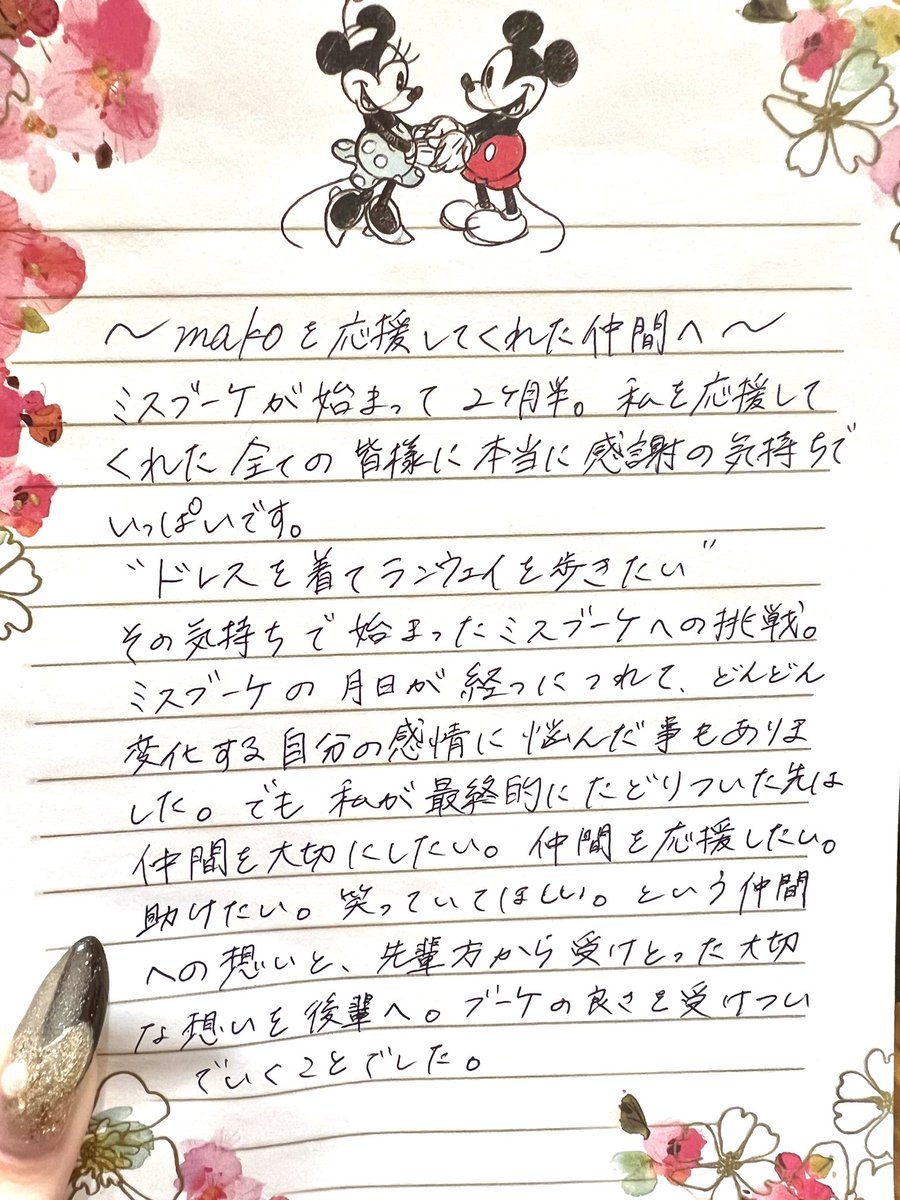 ～makoを応援してくれた仲間へ～
ミスブーケが始まって2ヶ月半。私を応援して
くれた全ての皆様に本当に感謝の気持ちで
いっぱいです。
"ドレスを着てランウェイを歩きたい"
その気持ちで始まったミスブーケへの挑戦。
ミスブーケの月日が経つにつれて、どんどん
変化する自分の感情に悩んだ事もありま
した。でも私が最終的にたどりついた先は
仲間を大切にしたい。仲間を応援したい。
助けたい。笑っていてほしい。という仲間
への想いと、先輩方から受けとった大切
な想いを後輩へ。ブーケの良さを受けつい
でいくことでした。